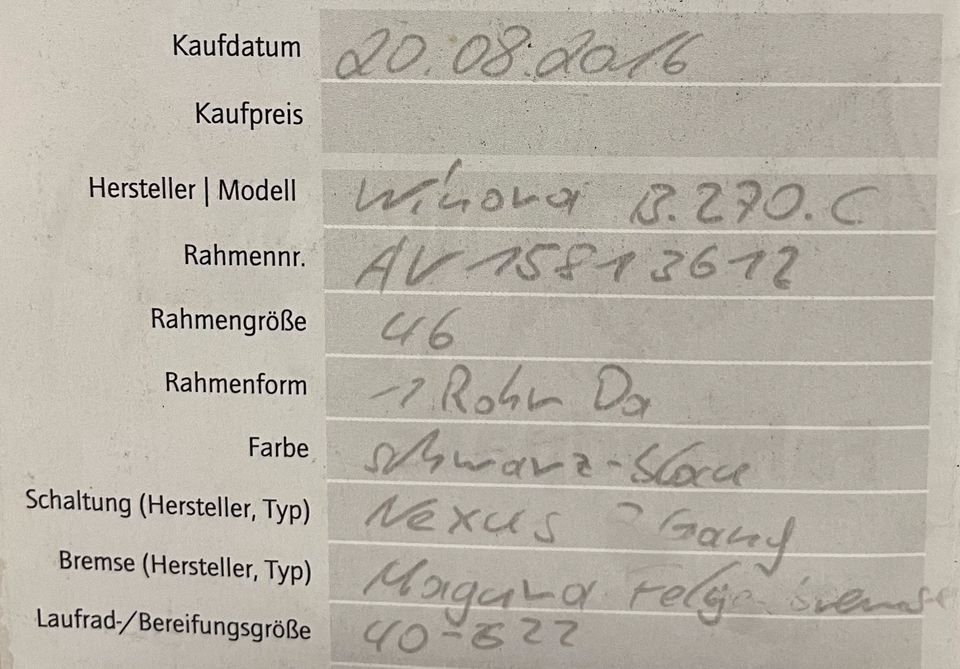 Kaufdatum 20.08.2016
Kaufpreis
Hersteller | Modell Winora B.270.C
Rahmennr. AV 15813612
Rahmengröße 46
Rahmenform 1 Rohr Da
Farbe schwarz-blau
Schaltung (Hersteller, Typ) Nexus 7 Gang
Bremse (Hersteller, Typ) Magura Felgenbremse
Laufrad-/Bereifungsgröße 40-622